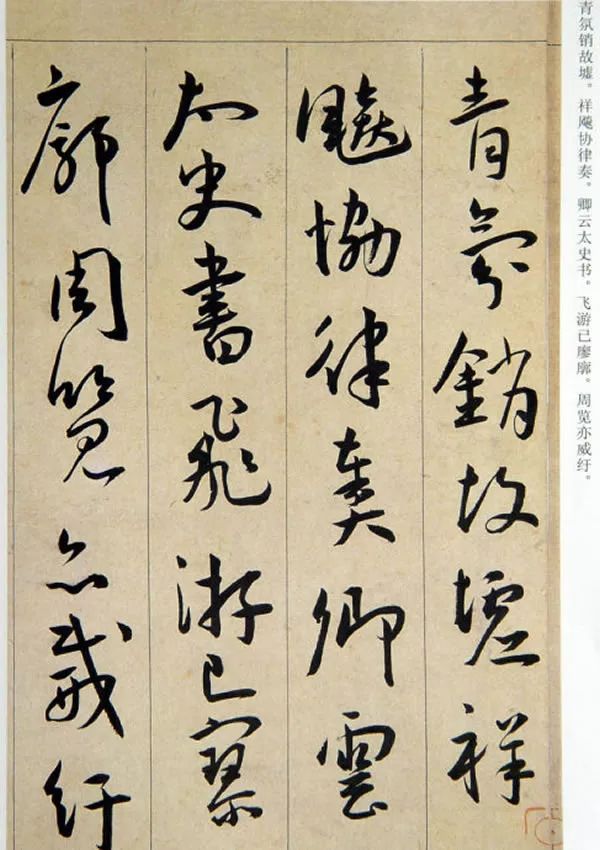 青氛销故墟。祥飚协律奏。卿云太史书。飞游已廖廓。周览亦威纡。
青氛銷故墟祥
飇恊律奏卿雲
太史書飛游已寥
廓周覽亦威紆